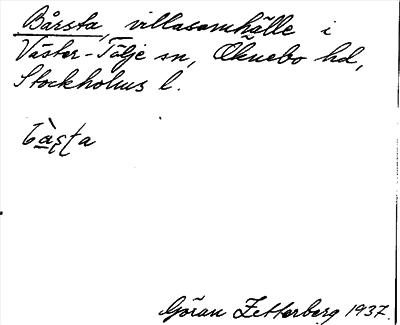 Bårsta, villasamhälle i
Väster-Tälje sn, Öknebo hd,
Stockholms l.
Göran Zetterberg 1937.